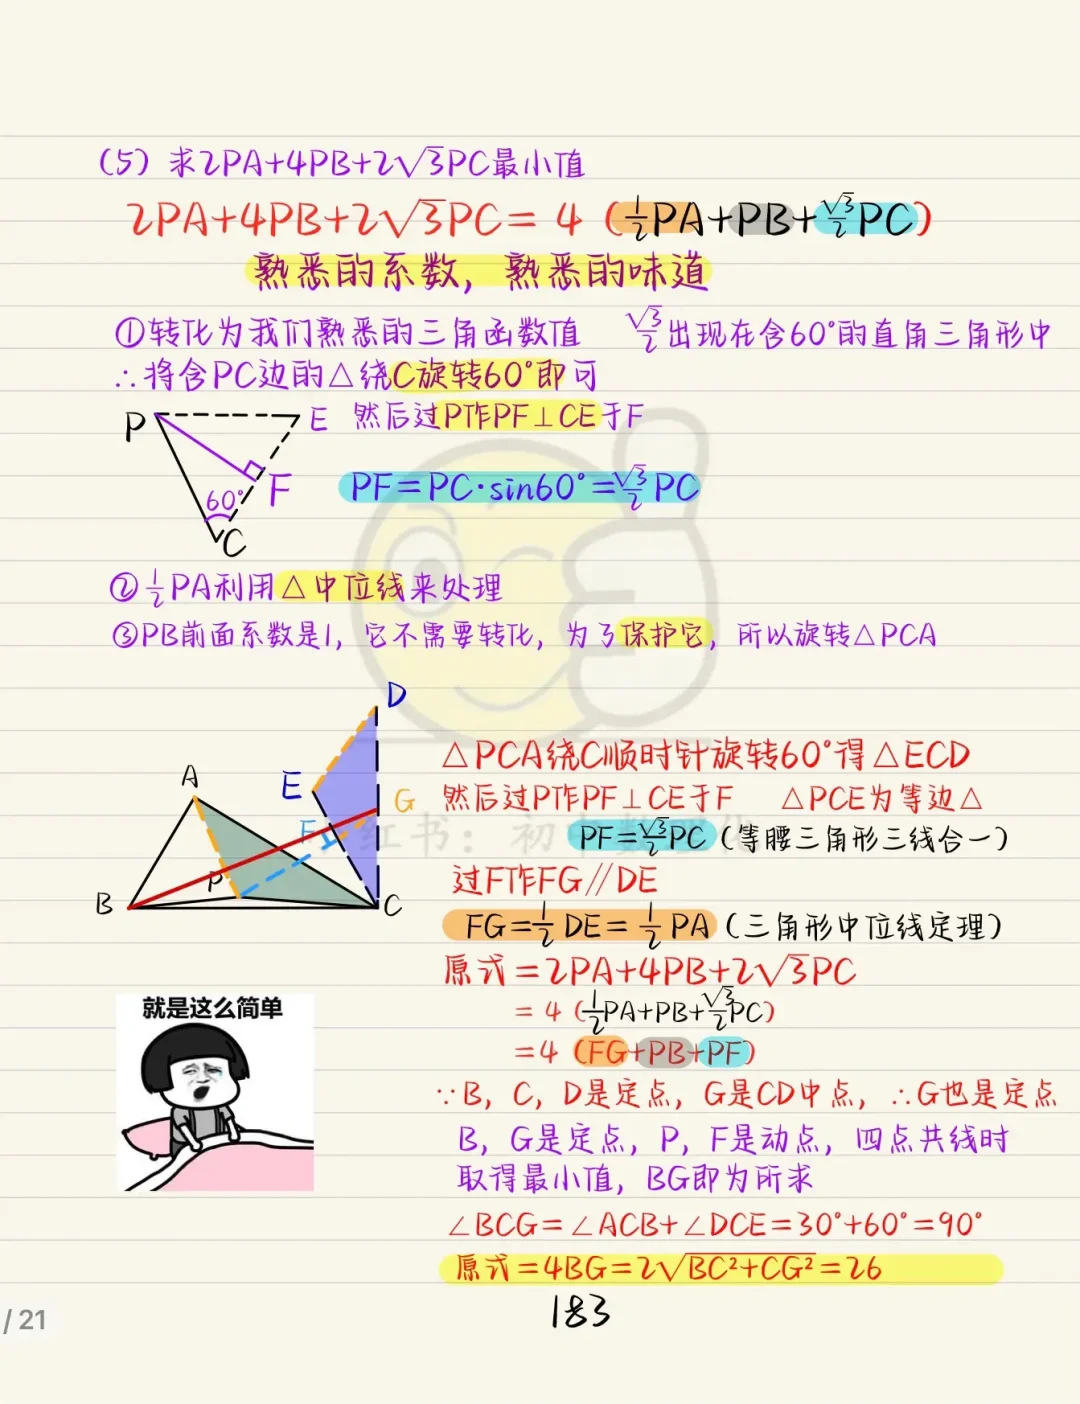 (5) 求2PA+4PB+2√3PC最小值
2PA+4PB+2√3PC=4(½PA+PB+√3/2PC)
熟悉的系数,熟悉的味道
①转化为我们熟悉的三角函数值 √3/2出现在含60°的直角三角形中
∴将含PC边的△绕C旋转60°即可
P E 然后过P作PF⊥CE于F
F PF=PC·sin60°=√3/2PC
60°
C
②½PA利用△中位线来处理
③PB前面系数是1,它不需要转化,为了保护它,所以旋转△PCA
D
△PCA绕C顺时针旋转60°得△ECD
A E G 然后过P作PF⊥CE于F △PCE为等边△
F 红书:初中数
PF=√3/2PC(等腰三角形三线合一)
P 过F作FG//DE
B C
FG=½DE=½PA(三角形中位线定理)
原式=2PA+4PB+2√3PC
=4(½PA+PB+√3/2PC)
就是这么简单
=4(FG+PB+PF)
∵B,C,D是定点,G是CD中点,∴G也是定点
B,G是定点,P,F是动点,四点共线时
取得最小值,BG即为所求
∠BCG=∠ACB+∠DCE=30°+60°=90°
原式=4BG=2√BC²+CG²=26
183
/ 21